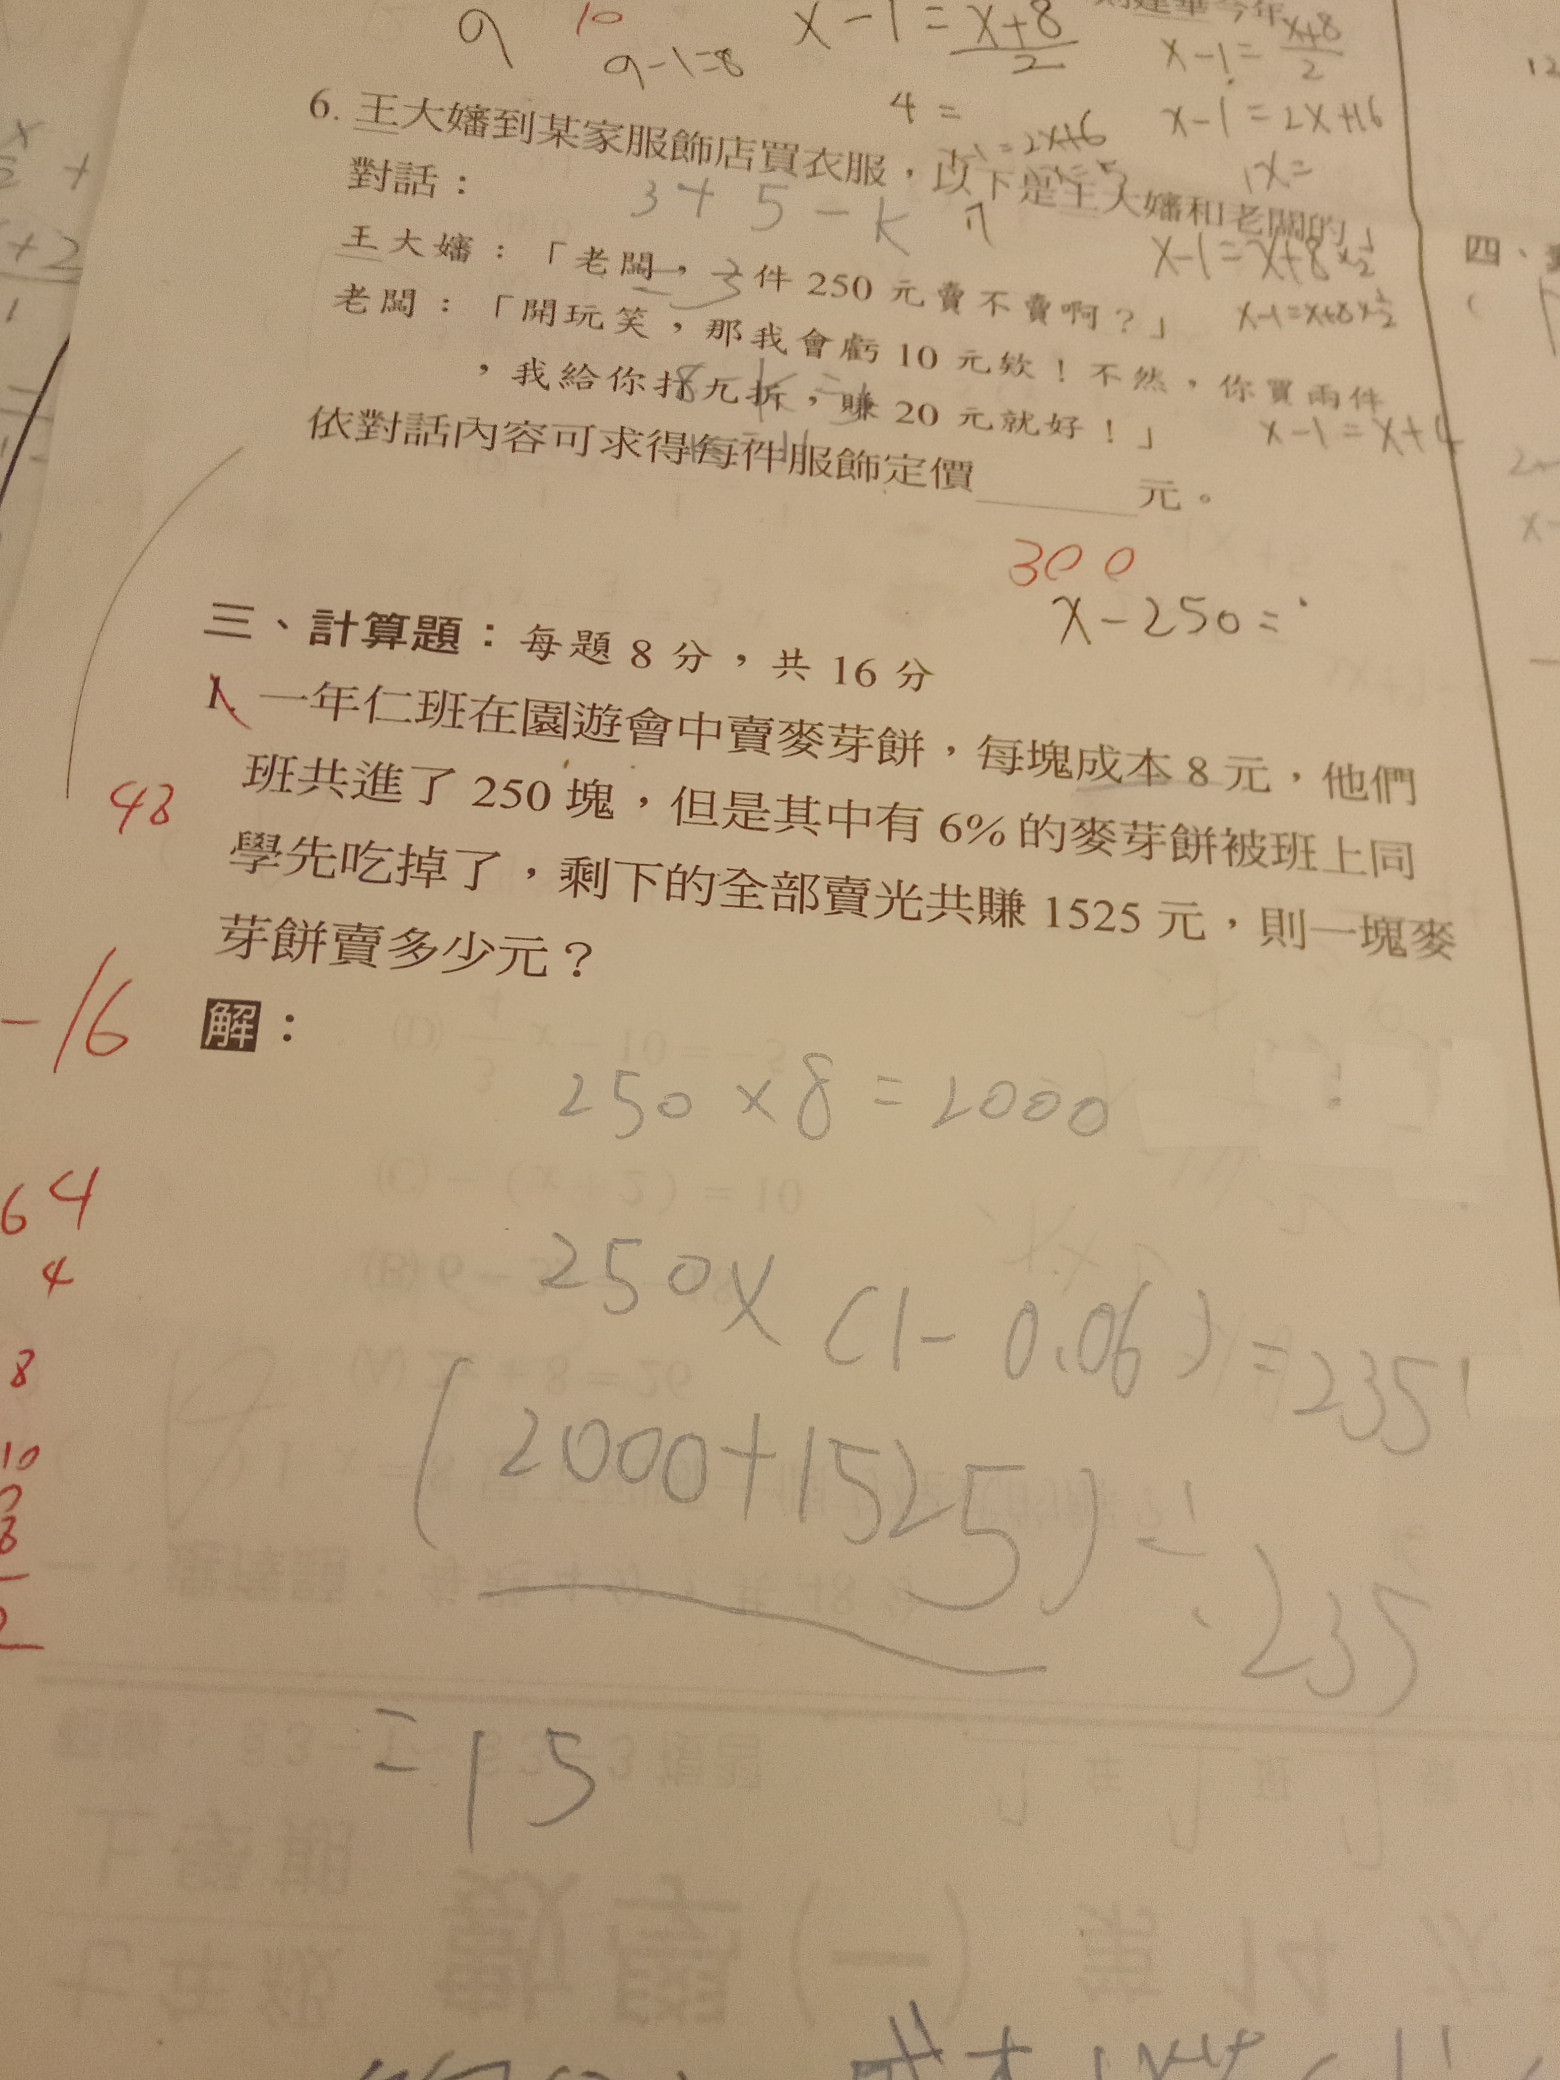 9
10
9-1=8
x-1=x+8/2
x-1=x+8/2
4=
x-1=2x+16
6. 王大嬸到某家服飾店買衣服，以下是王大嬸和老闆的
對話：
3+5-k
x-1=x+8×1/2
王大嬸：「老闆，一件 250 元賣不賣啊？」
x-1=x+8×1/2
老闆：「開玩笑，那我會虧 10 元欸！不然，你買兩件
，我給你打九折，賺 20 元就好！」
x-1=x+4
依對話內容可求得每件服飾定價______元。
300
x-250=
三、計算題：每題 8 分，共 16 分
1. 一年仁班在園遊會中賣麥芽餅，每塊成本 8 元，他們
班共進了 250 塊，但是其中有 6% 的麥芽餅被班上同
學先吃掉了，剩下的全部賣光共賺 1525 元，則一塊麥
芽餅賣多少元？
48
-16
解：
250×8=2000
64
4
250×(1-0.06)=235
8
(2000+1525)÷235
10
8
2
=15
四、